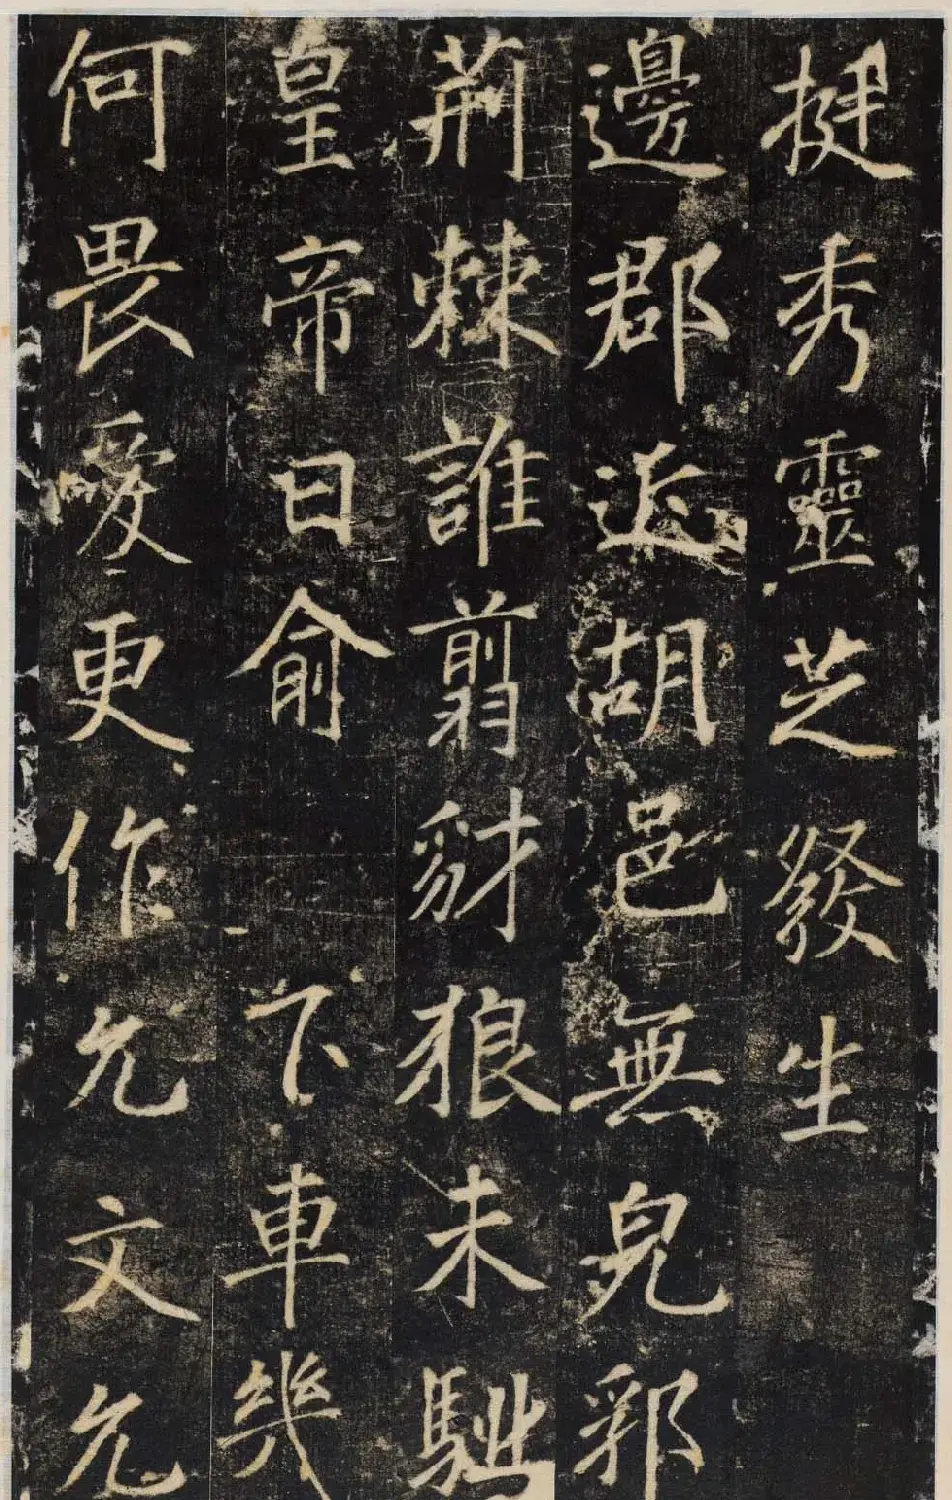 挺秀靈芝發生
邊郡近胡邑無皃郛
荊棘誰翦豺狼未馳
皇帝曰俞 下車幾
何畏愛更作允文允